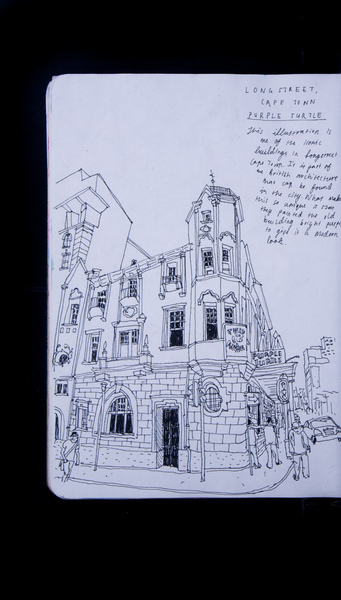 LONG STREET,
CAPE TOWN
PURPLE TURTLE
This illustration is
one of the iconic
buildings in longstreet
Cape Town. It is part of
British architecture
that can be found
in the city. What makes
this so unique is
they painted the old
building bright purple
to give it a modern
look.
PURPLE